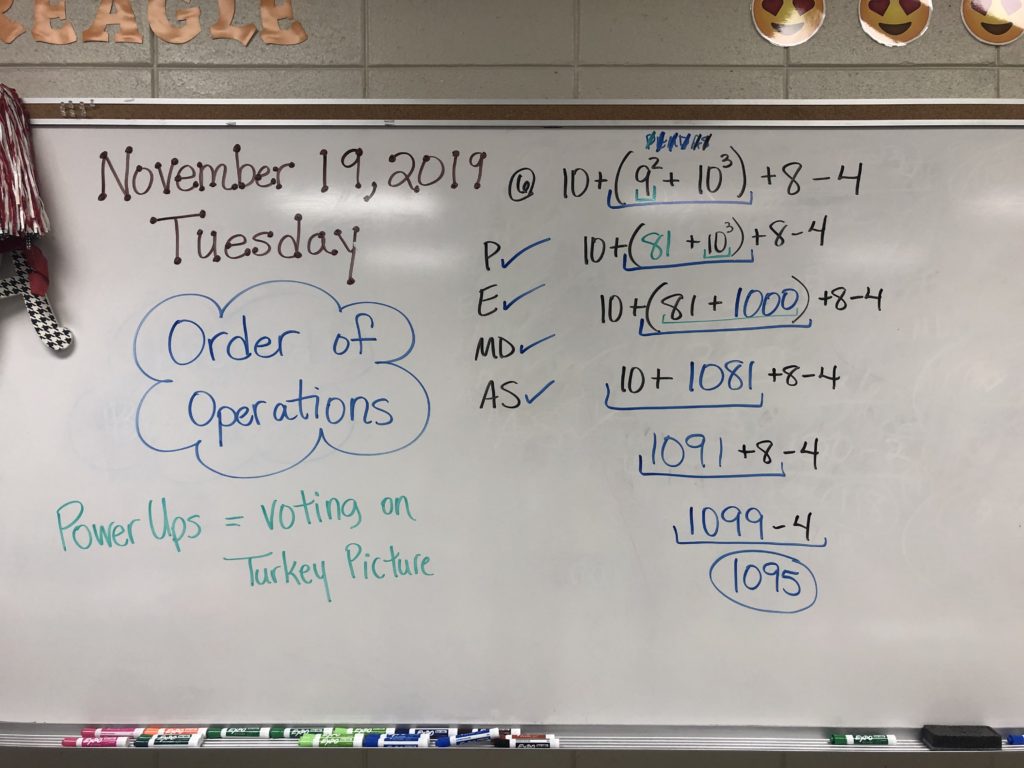 EAGLE
November 19, 2019
Tuesday
Order of
Operations
Power Ups = voting on
Turkey Picture
P✓
E✓
MD✓
AS✓
⑥ 10+(9²+10³)+8-4
10+(81+10³)+8-4
10+(81+1000)+8-4
10+1081+8-4
1091+8-4
1099-4
1095